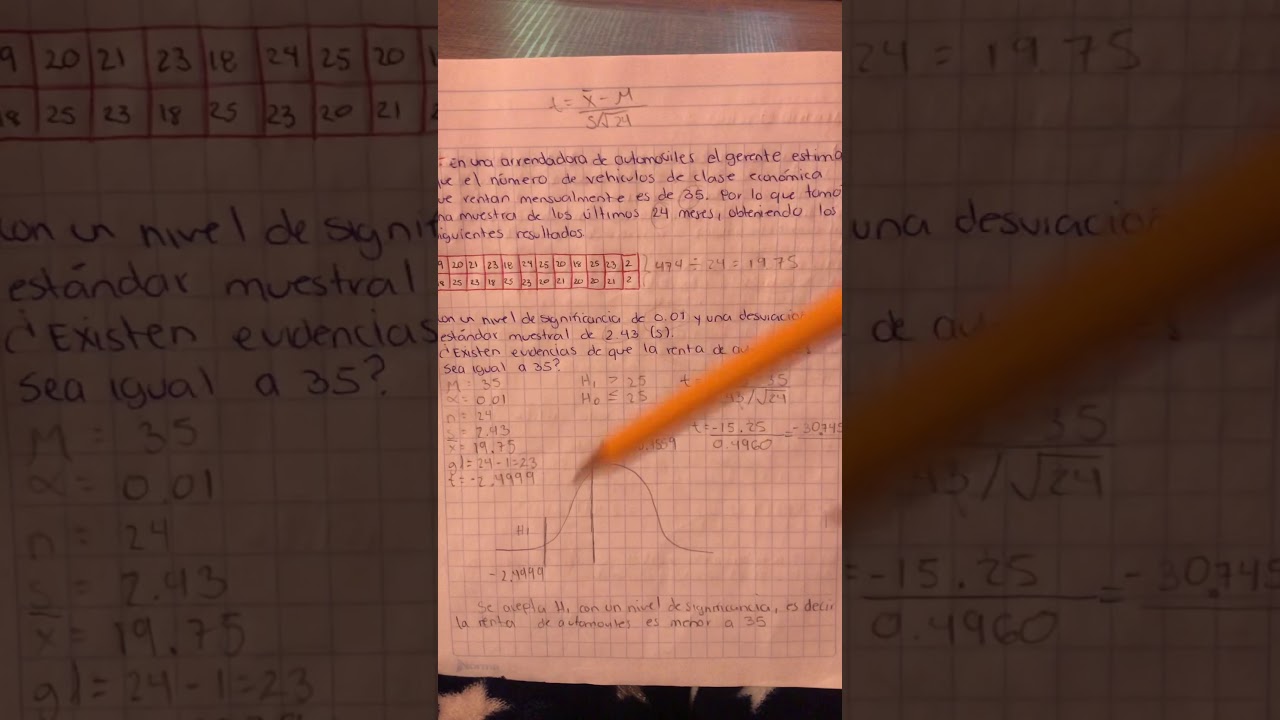 t = x̄ - M
S√24
En una arrendadora de automoviles el gerente estima
que el número de vehiculos de clase económica
que rentan mensualmente es de 35. Por lo que tomo
una muestra de los últimos 24 meses, obteniendo los
siguientes resultados.
9 20 21 23 18 24 25 20 18 25 23 2
8 25 23 18 25 23 20 21 20 20 21 2
474 ÷ 24 = 19.75
con un nivel de significancia de 0.01 y una desviacion
estándar muestral de 2.43 (s).
¿Existen evidencias de que la renta de
sea igual a 35?
M = 35
α = 0.01
n = 24
s = 2.43
x̄ = 19.75
gl = 24 - 1 = 23
t = -2.4999
H₁ > 25
H₀ ≤ 25
35
43/√24
t = -15.25
0.4960
= -30.745
H₁
-2.4999
Se acepta H₁ con un nivel de significancia, es decir
la renta de automoviles es menor a 35
Norma